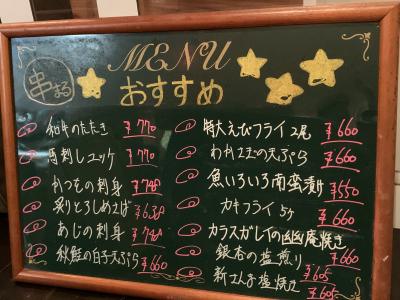 串まる
MENU
おすすめ
和牛のたたき ¥770
馬刺しユッケ ¥770
かつおの刺身 ¥748
炙りとろしめさば ¥638
あじの刺身 ¥748
秋鮭の白子天ぷら ¥660
特大えびフライ2尾 ¥660
わかさぎの天ぷら ¥660
魚いろいろ南蛮漬け ¥550
カキフライ5ヶ ¥660
カラスガレイの幽庵焼き ¥660
銀杏の塩煎り ¥605
新さんま塩焼き ¥605